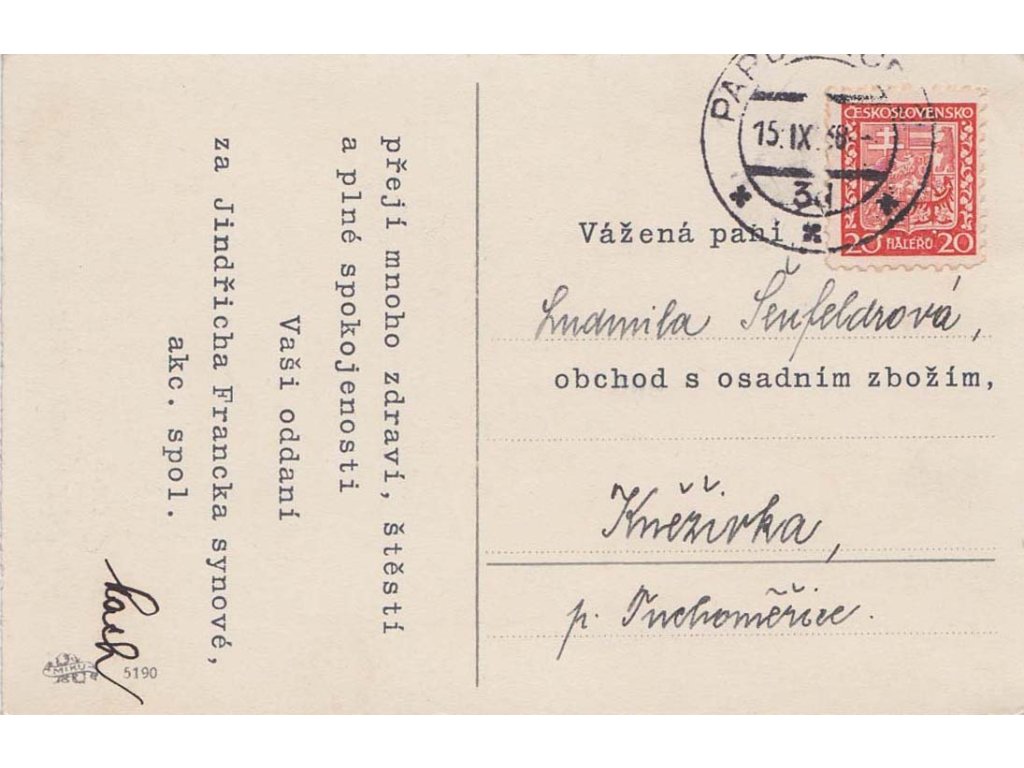 přejí mnoho zdraví, štěstí
a plné spokojenosti
Vaši oddaní
za Jindřicha Francka synové,
akc. spol.
MIKU
5190
15.IX.38
ČESKOSLOVENSKO
20 HALÉŘŮ 20
Vážená paní
Ludmila Šenfeldrová,
obchod s osadním zbožím,
Kněživka,
p. Tuchoměřice.